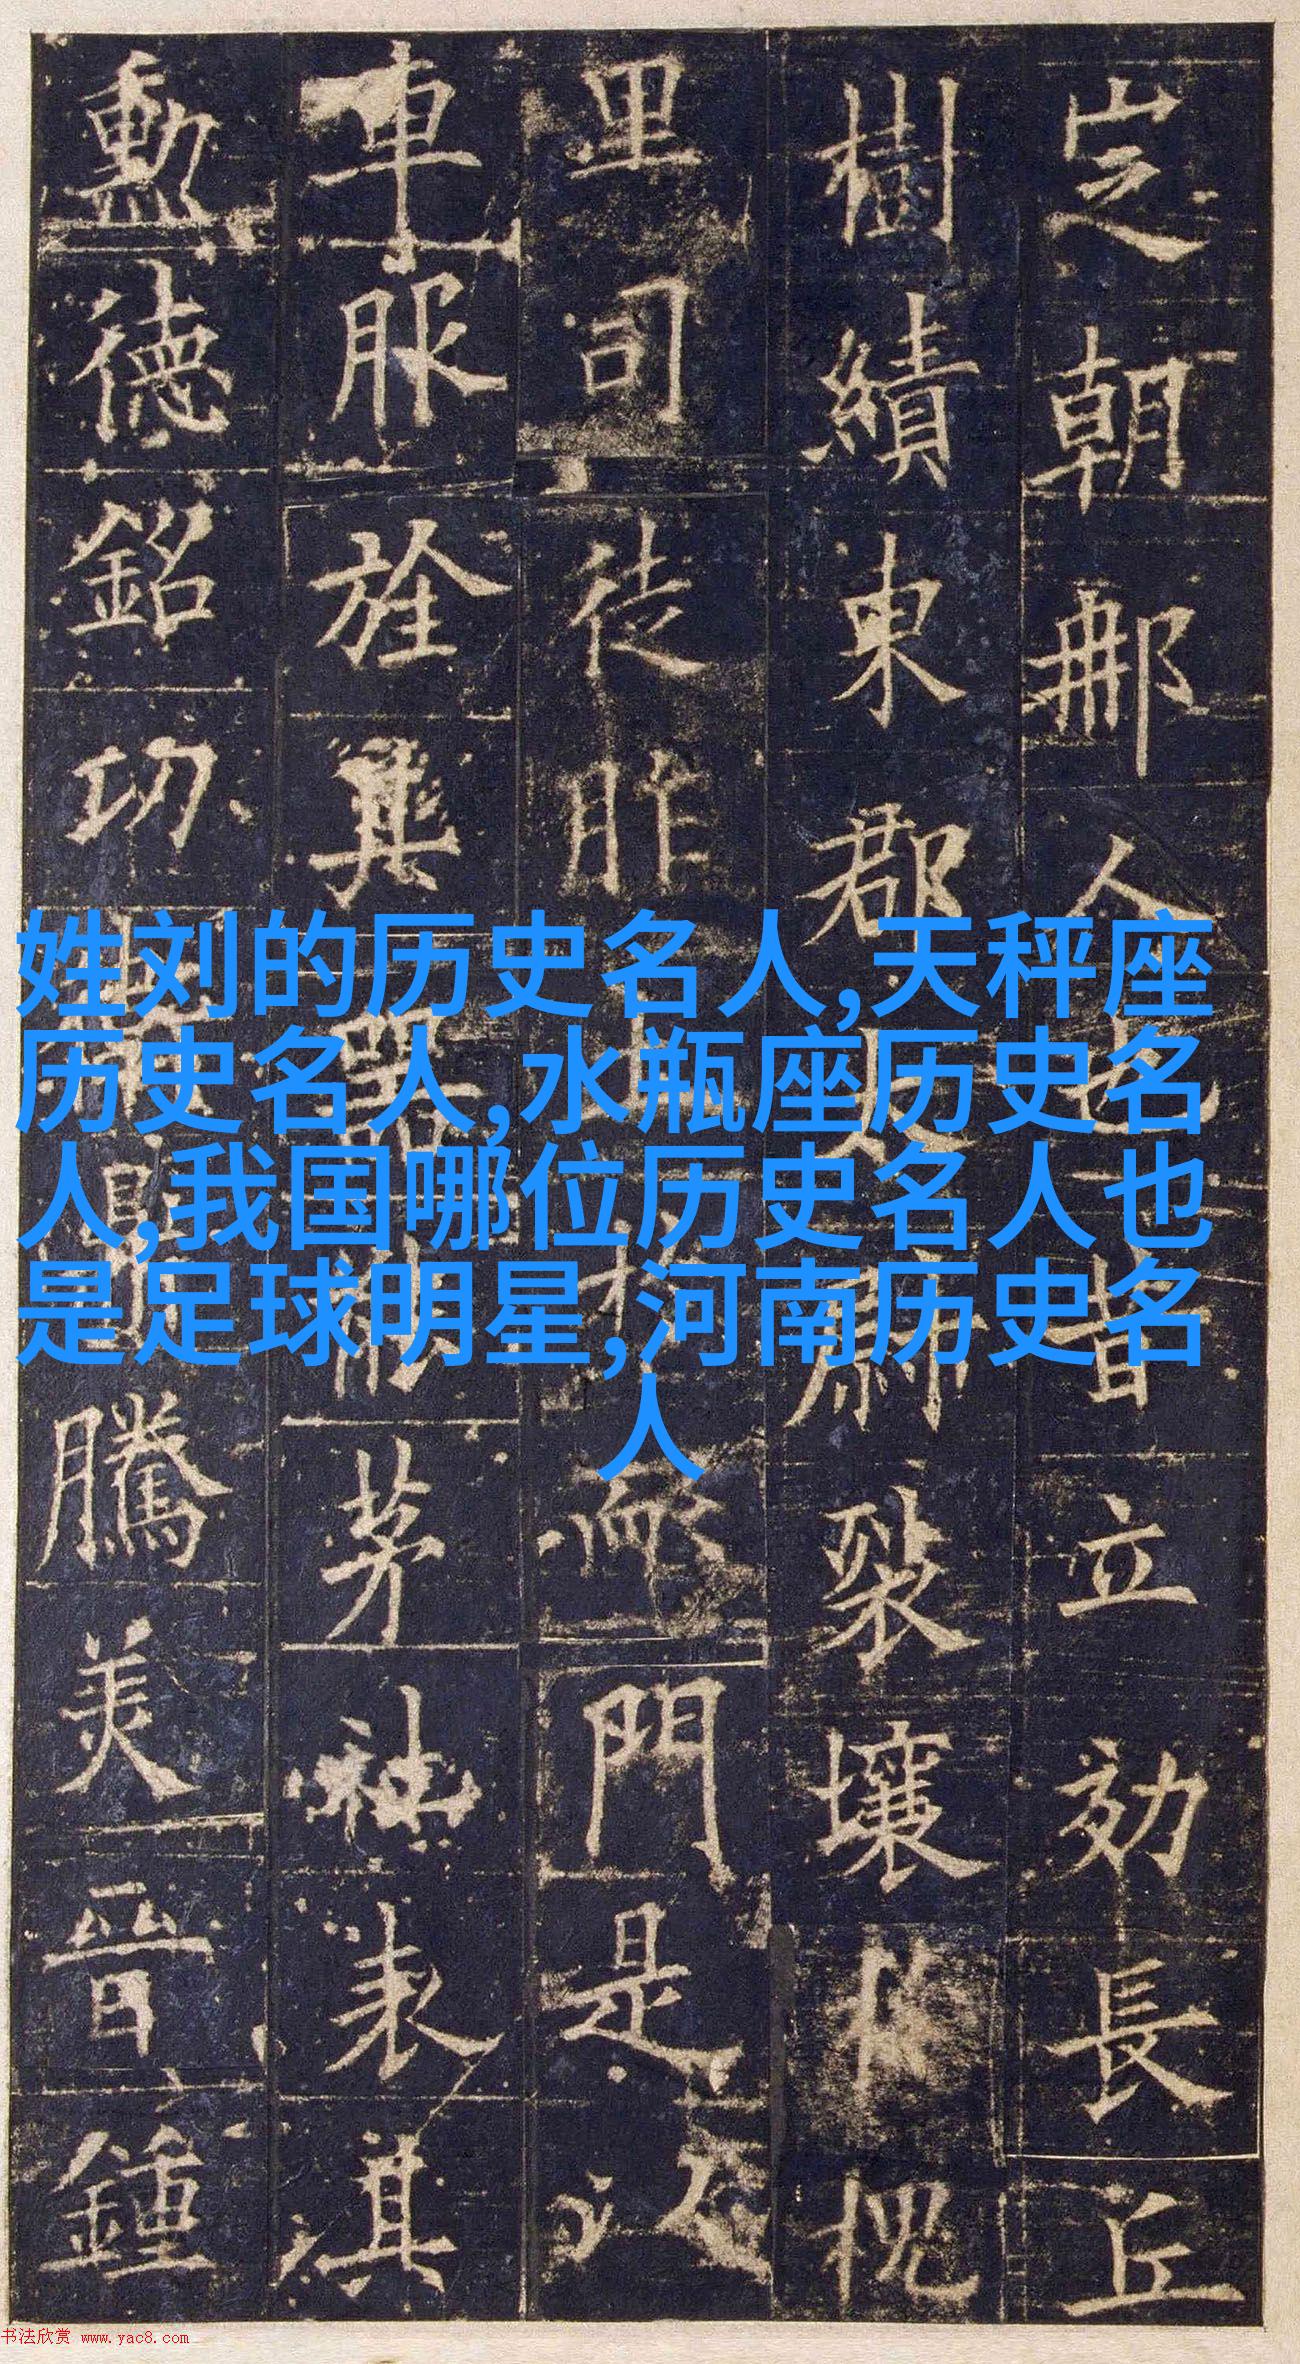 定朝那人也昔立効長丘
樹績東郡太尉裂壤於槐
里司徒胙土於耏門是以
車服旌其器能茅社表其
勳德銘功衛鼎騰美晉鍾
姓刘的历史名人,天秤座
历史名人,水瓶座历史名
人,我国哪位历史名人也
是足球明星,河南历史名
人
书法欣赏 www.yac8.com